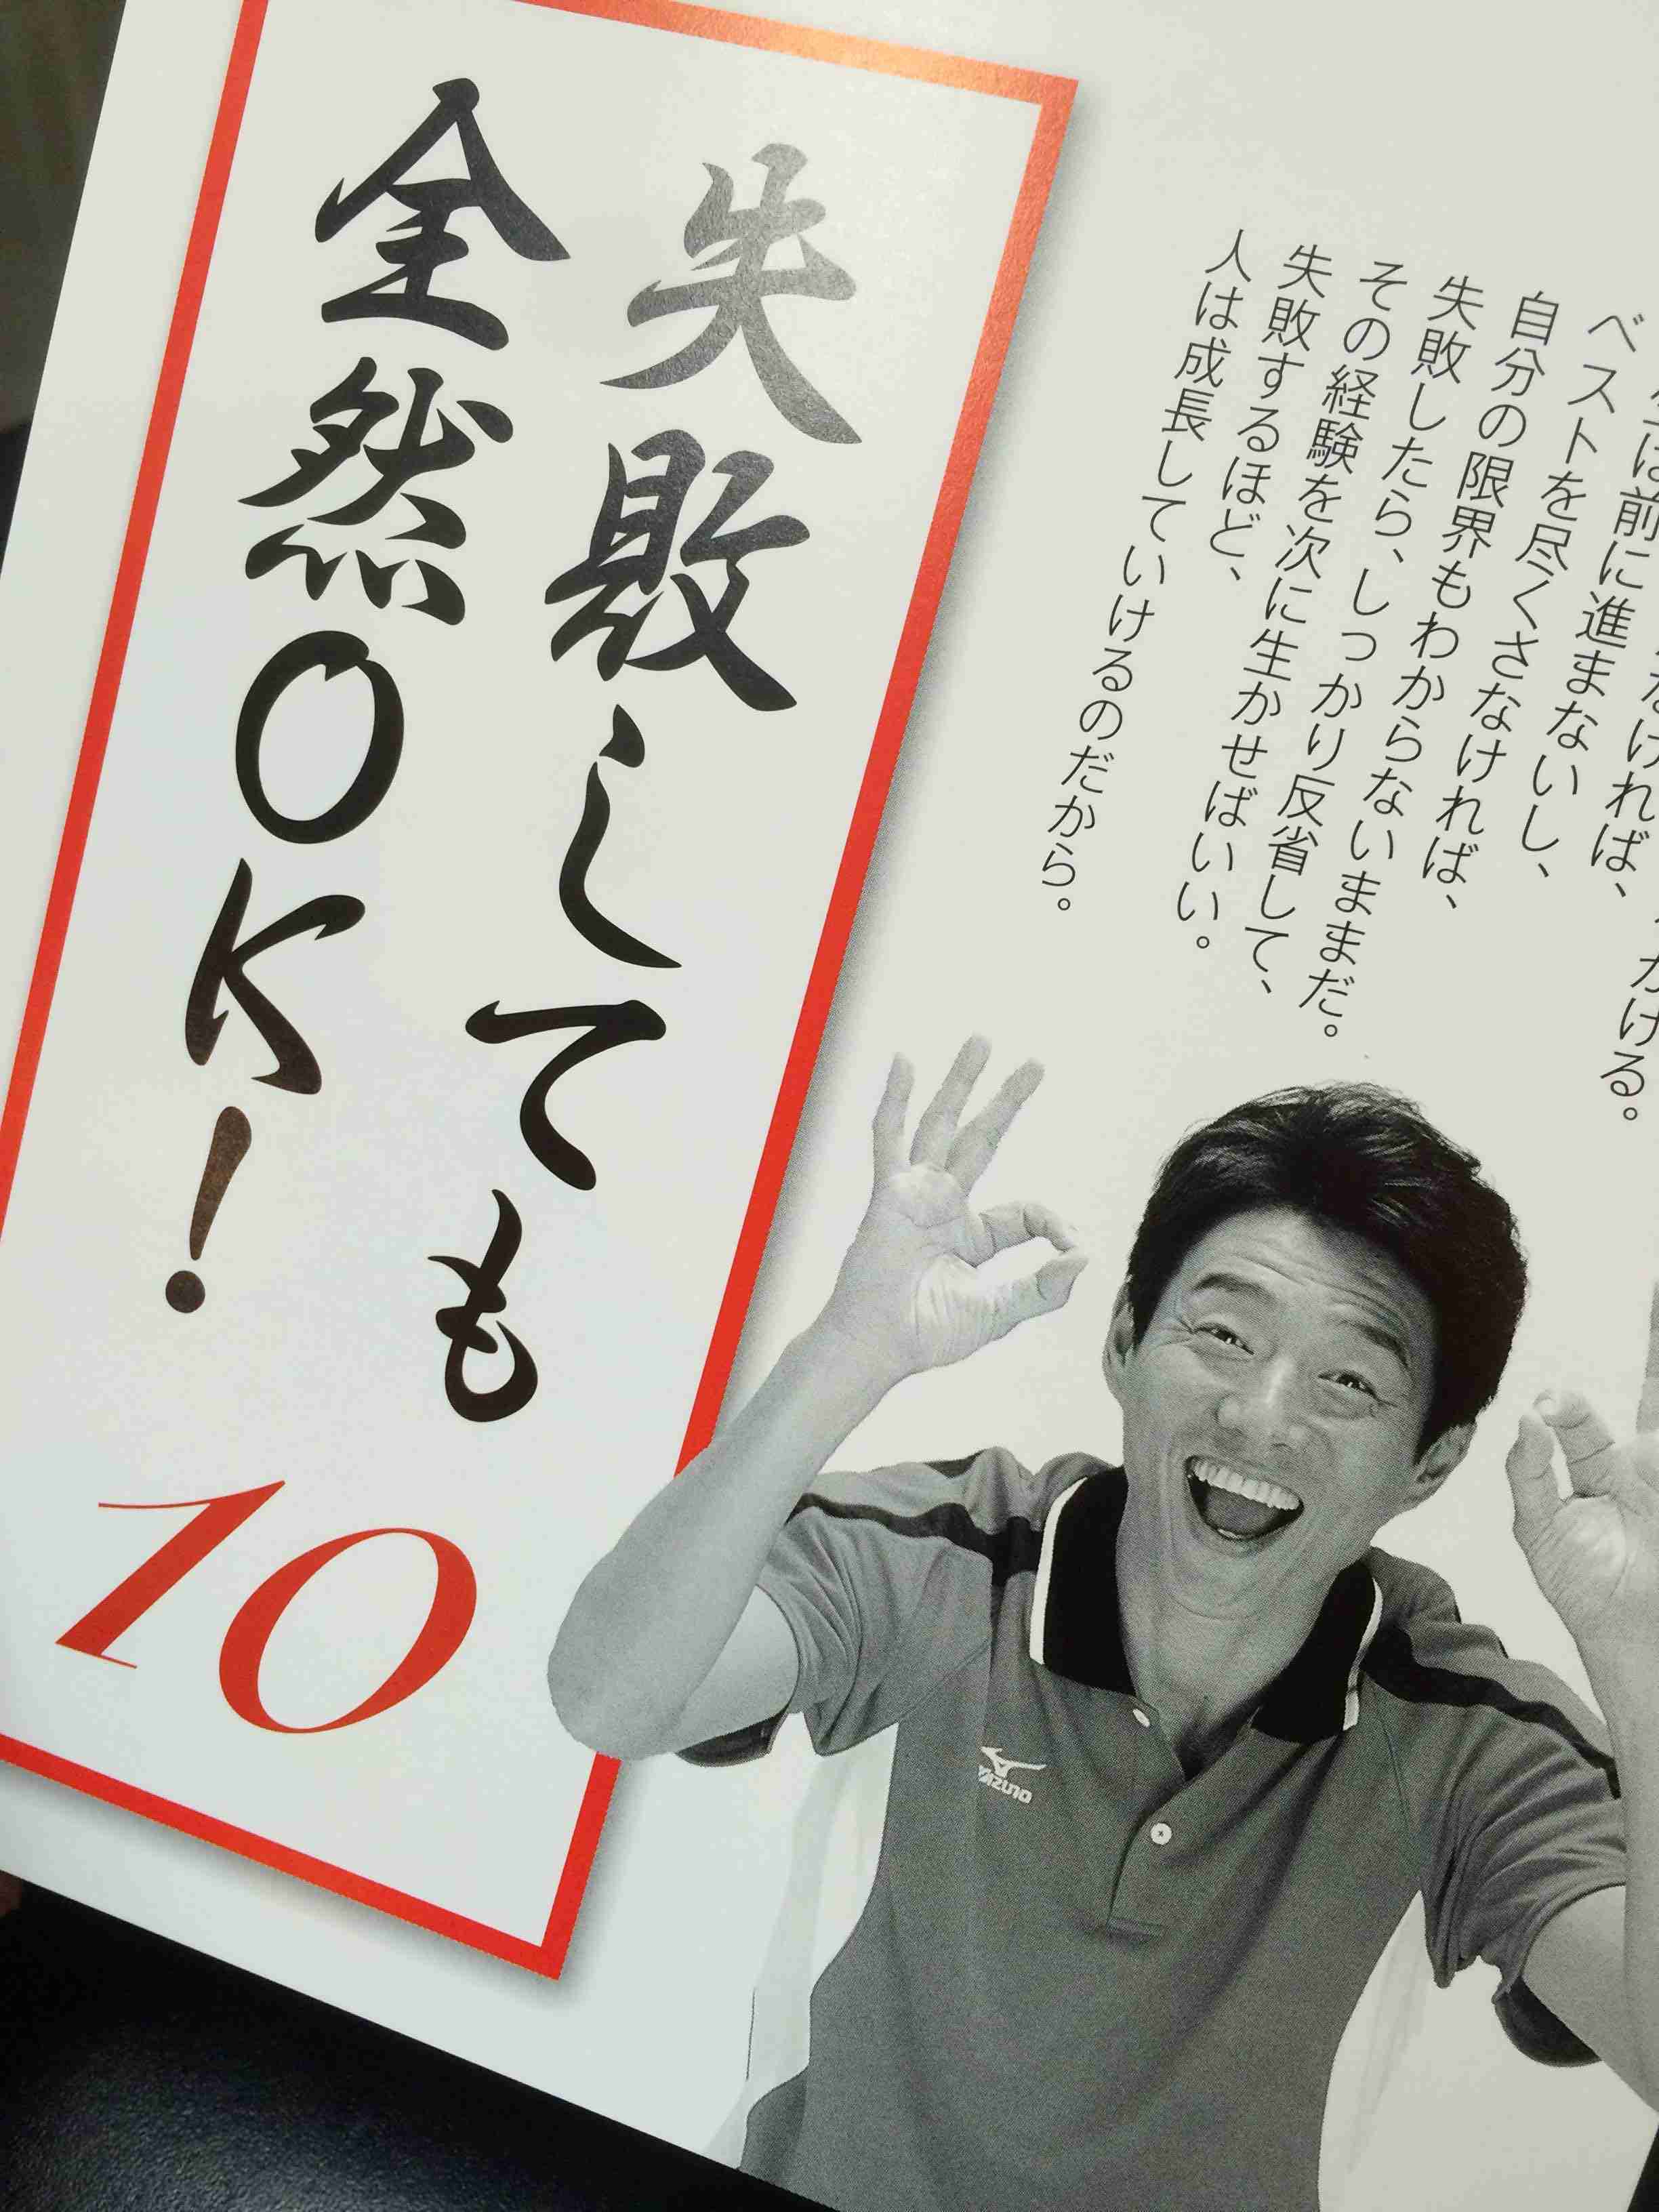 ベストを尽くさなければ、
自分の限界もわからないままだ。
失敗したら、しっかり反省して、
その経験を次に生かせばいい。
失敗するほど、
人は成長していけるのだから。
失敗しても
全然OK!
10
MIZUNO